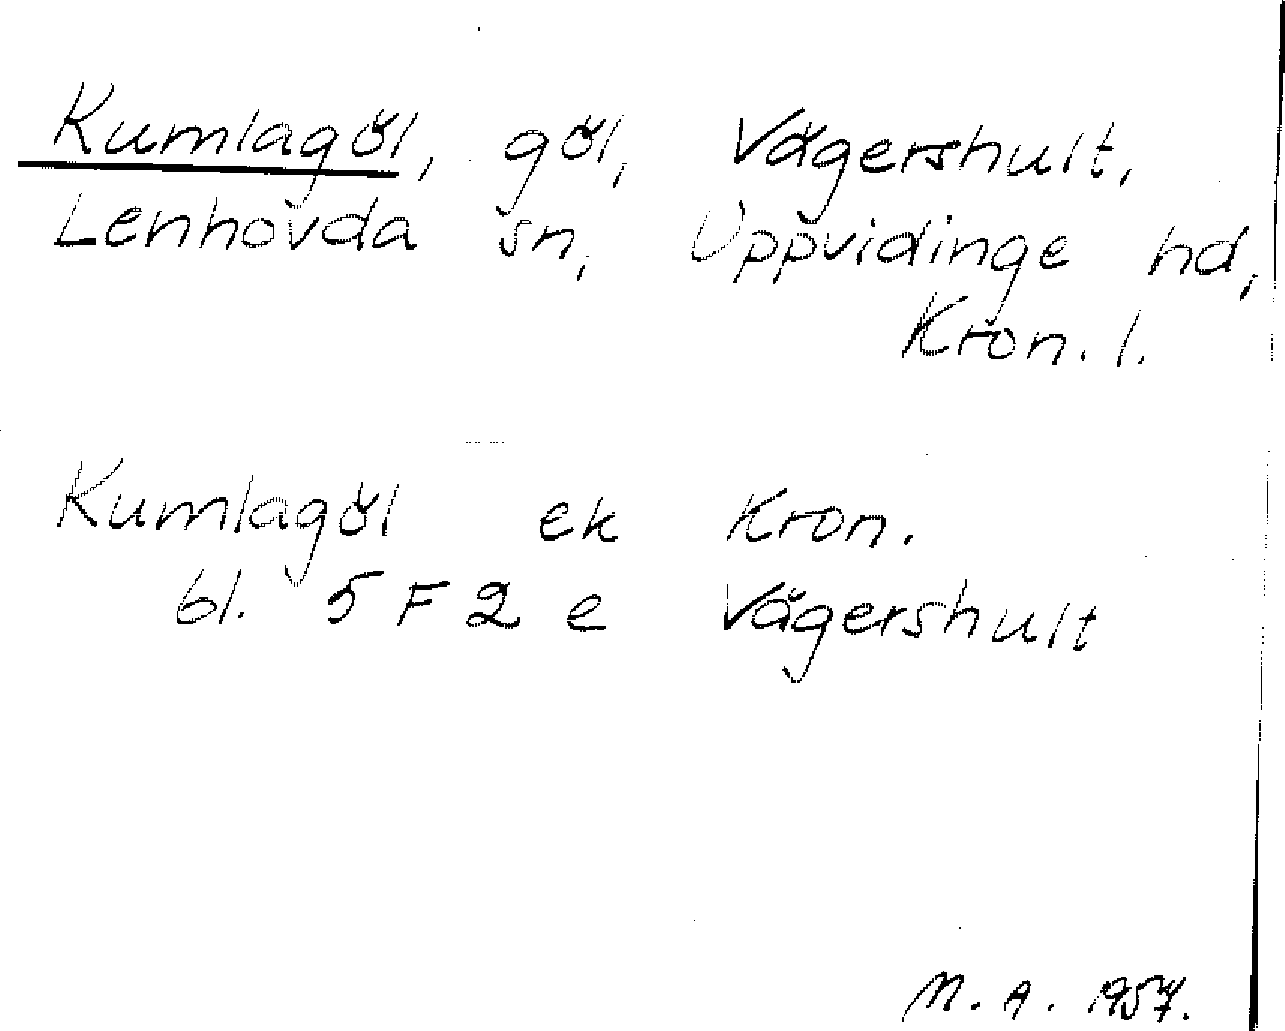 Kumlagöl, göl, Vågershult,
Lenhovda sn, Uppvidinge hd,
Kron. l.
Kumlagöl ek Kron.
bl. 5 F 2 e Vågershult
M. A. 1957.